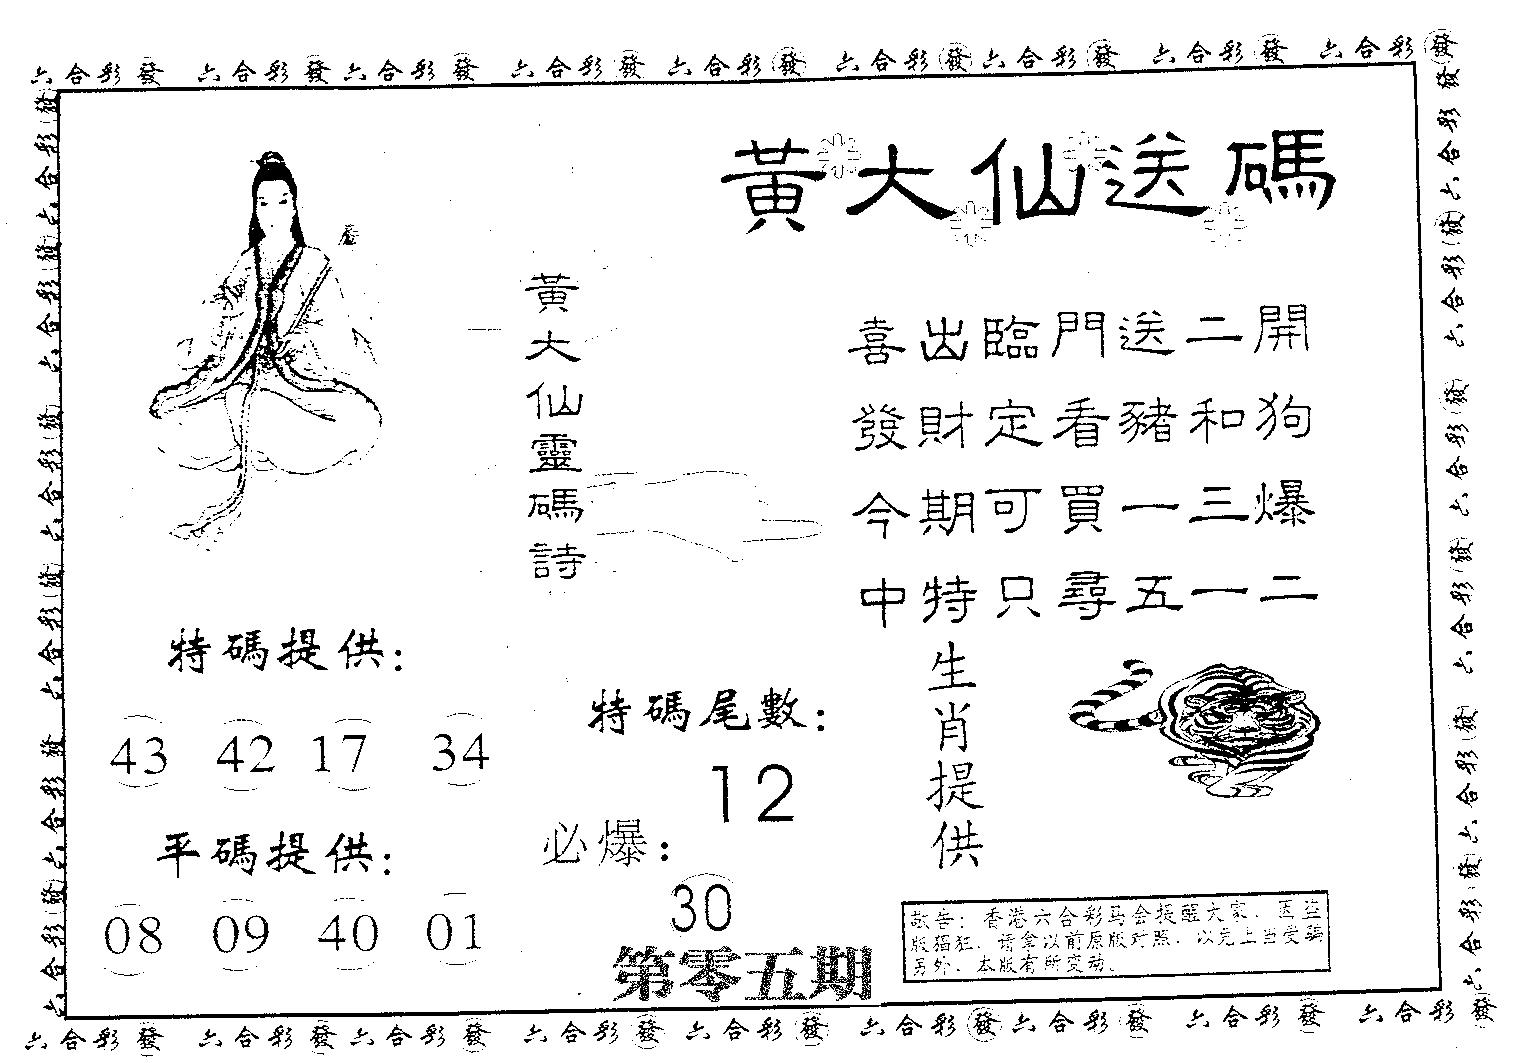 六合彩發 六合彩發 六合彩發 六合彩發 六合彩發 六合彩發 六合彩發 六合彩發 六合彩發
黃大仙送碼
黃大仙靈碼詩
喜出臨門送二開
發財定看豬和狗
今期可買一三爆
中特只尋五一二
特碼提供:
43 42 17 34
平碼提供:
08 09 40 01
特碼尾數:
12
必爆:
30
第零五期
生肖提供
敬告:香港六合彩马会提醒大家.因盗
版猖狂.请拿以前原版对照.以免上当受骗
另外.本版有所变动.
六合彩發 六合彩發 六合彩發 六合彩發 六合彩發 六合彩發 六合彩發 六合彩發 六合彩發